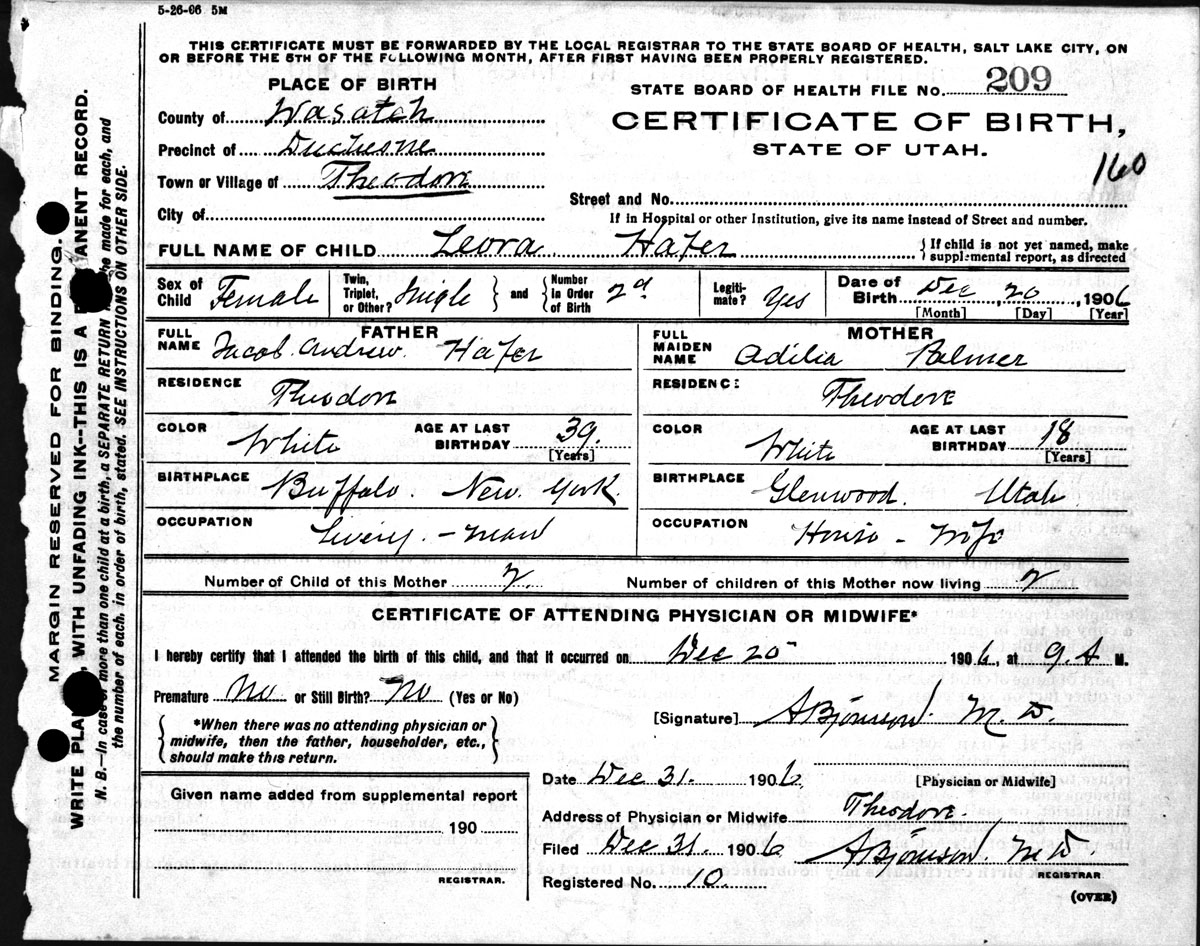 5-26-06 5M
THIS CERTIFICATE MUST BE FORWARDED BY THE LOCAL REGISTRAR TO THE STATE BOARD OF HEALTH, SALT LAKE CITY, ON
OR BEFORE THE 5TH OF THE FOLLOWING MONTH, AFTER FIRST HAVING BEEN PROPERLY REGISTERED.
PLACE OF BIRTH
STATE BOARD OF HEALTH FILE No. 209
County of Wasatch
CERTIFICATE OF BIRTH,
Precinct of Duchesne
STATE OF UTAH.
160
Town or Village of Theodore
Street and No.
City of
If in Hospital or other Institution, give its name instead of Street and number.
FULL NAME OF CHILD Leora Hafer { If child is not yet named, make
supplemental report, as directed
Sex of Child Female
Twin, Triplet, or Other? Single } and { Number in Order of Birth 2d
Legitimate? Yes
Date of Birth Dec 20, 1906
[Month] [Day] [Year]
FATHER
FULL NAME Jacob Andrew Hafer
MOTHER
FULL MAIDEN NAME Adilia Palmer
RESIDENCE Theodore
RESIDENCE Theodore
COLOR White AGE AT LAST BIRTHDAY 39. [Years]
COLOR White AGE AT LAST BIRTHDAY 18 [Years]
BIRTHPLACE Buffalo. New York.
BIRTHPLACE Glenwood. Utah
OCCUPATION Livery-man
OCCUPATION House-Wife
Number of Child of this Mother 2 Number of children of this Mother now living 2
CERTIFICATE OF ATTENDING PHYSICIAN OR MIDWIFE*
I hereby certify that I attended the birth of this child, and that it occurred on Dec 20 1906, at 9 A M.
Premature No or Still Birth? No (Yes or No)
[Signature] A Bjornson. M. D.
{ *When there was no attending physician or
midwife, then the father, householder, etc.,
should make this return. }
[Physician or Midwife]
Date Dec 31. 1906
Given name added from supplemental report
190
REGISTRAR.
Address of Physician or Midwife Theodore.
Filed Dec 31. 1906 A Bjornson. M D.
REGISTRAR
Registered No. 10.
(OVER)
MARGIN RESERVED FOR BINDING.
WRITE PLA , WITH UNFADING INK—THIS IS A P ANENT RECORD.
N. B.—In case of more than one child at a birth, a SEPARATE RETURN be made for each, and
the number of each, in order of birth, stated. SEE INSTRUCTIONS ON OTHER SIDE.